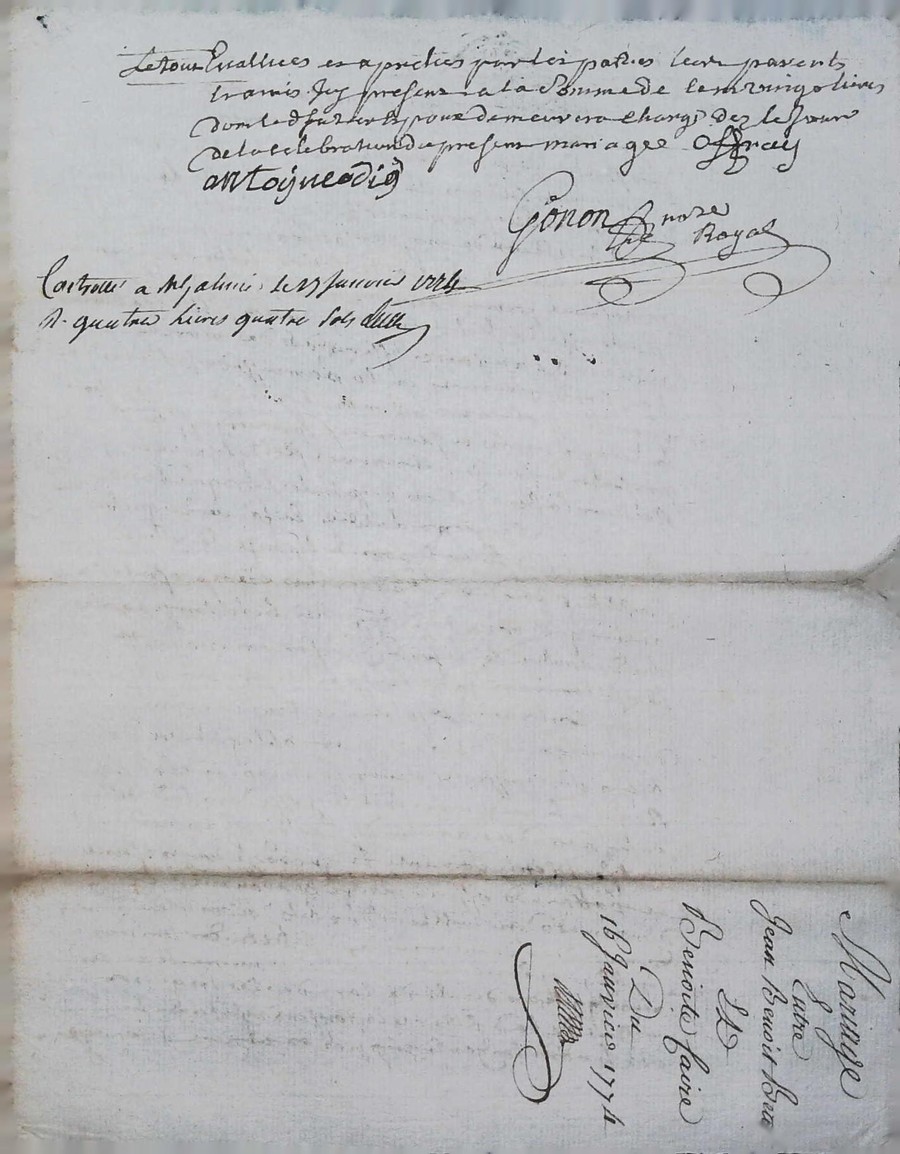 Le tout Evalluées et apretiées par les parties leurs parents
et amis Icy presents a la Somme de cent vingt livres
dont led futur epoux demeurera chargé dez le Jour
de la celebration du present mariage
antoyne odig
Gonon nore
Royal
Controllé a St Galmier le 17 Janvier 1774
R. quatre livres quatre Sols
Mariage
Entre
Jean Benoit
Et
Benoite faure
Du
16 Janvier 1774